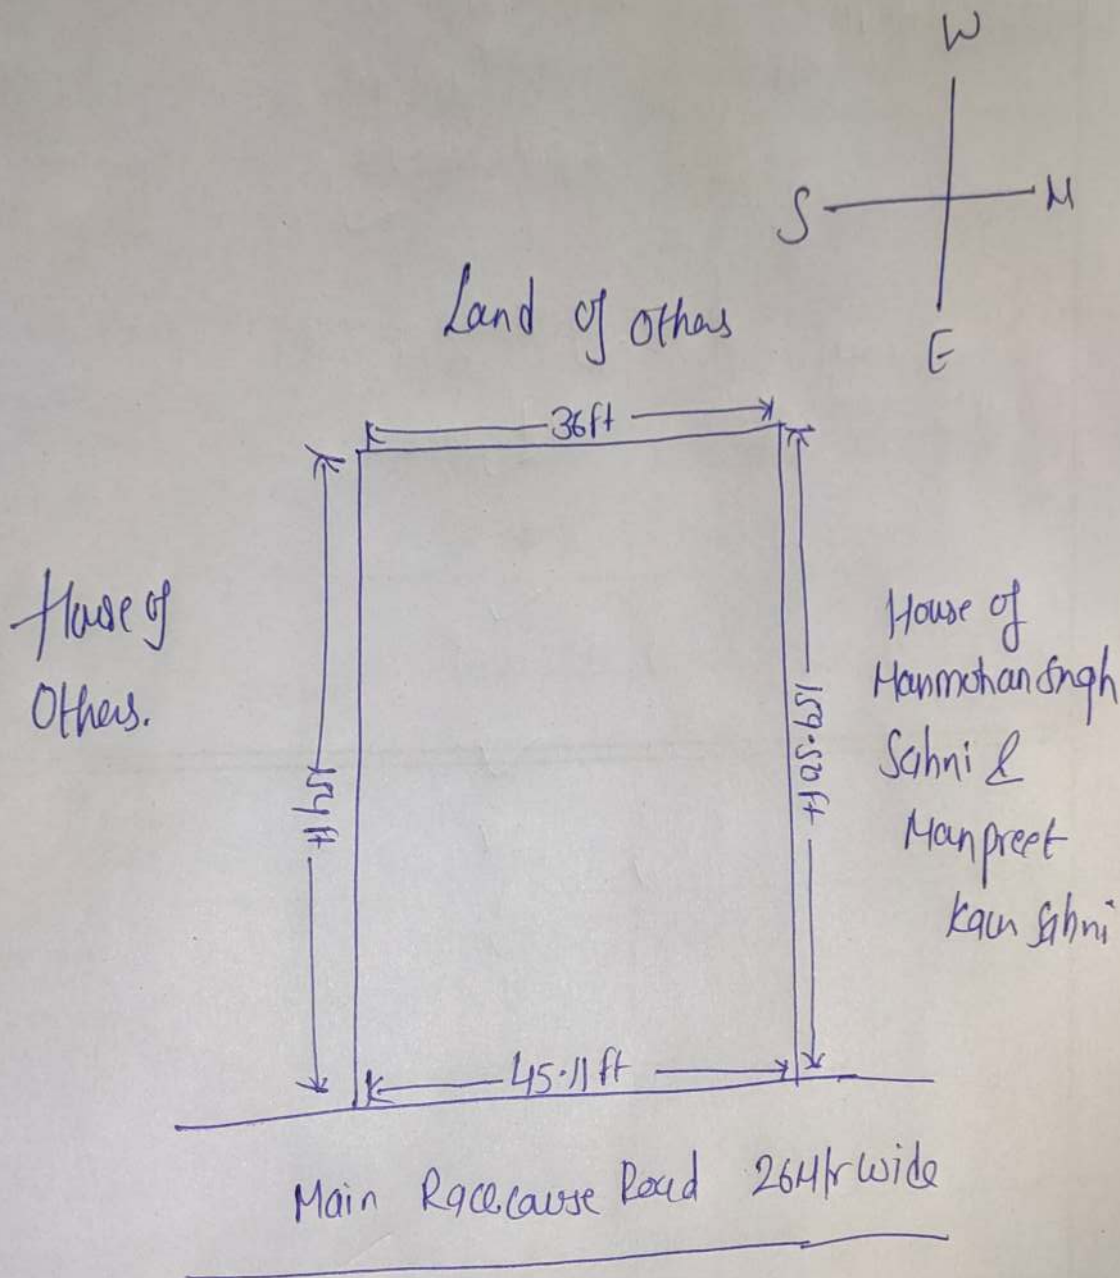 W
S
N
E
Land of Others
36ft
House of
Others.
154 ft
159.50 ft
House of
Manmohan Singh
Sahni &
Manpreet
Kaur Sahni
45.11 ft
Main Racecause Road 26Mtr wide